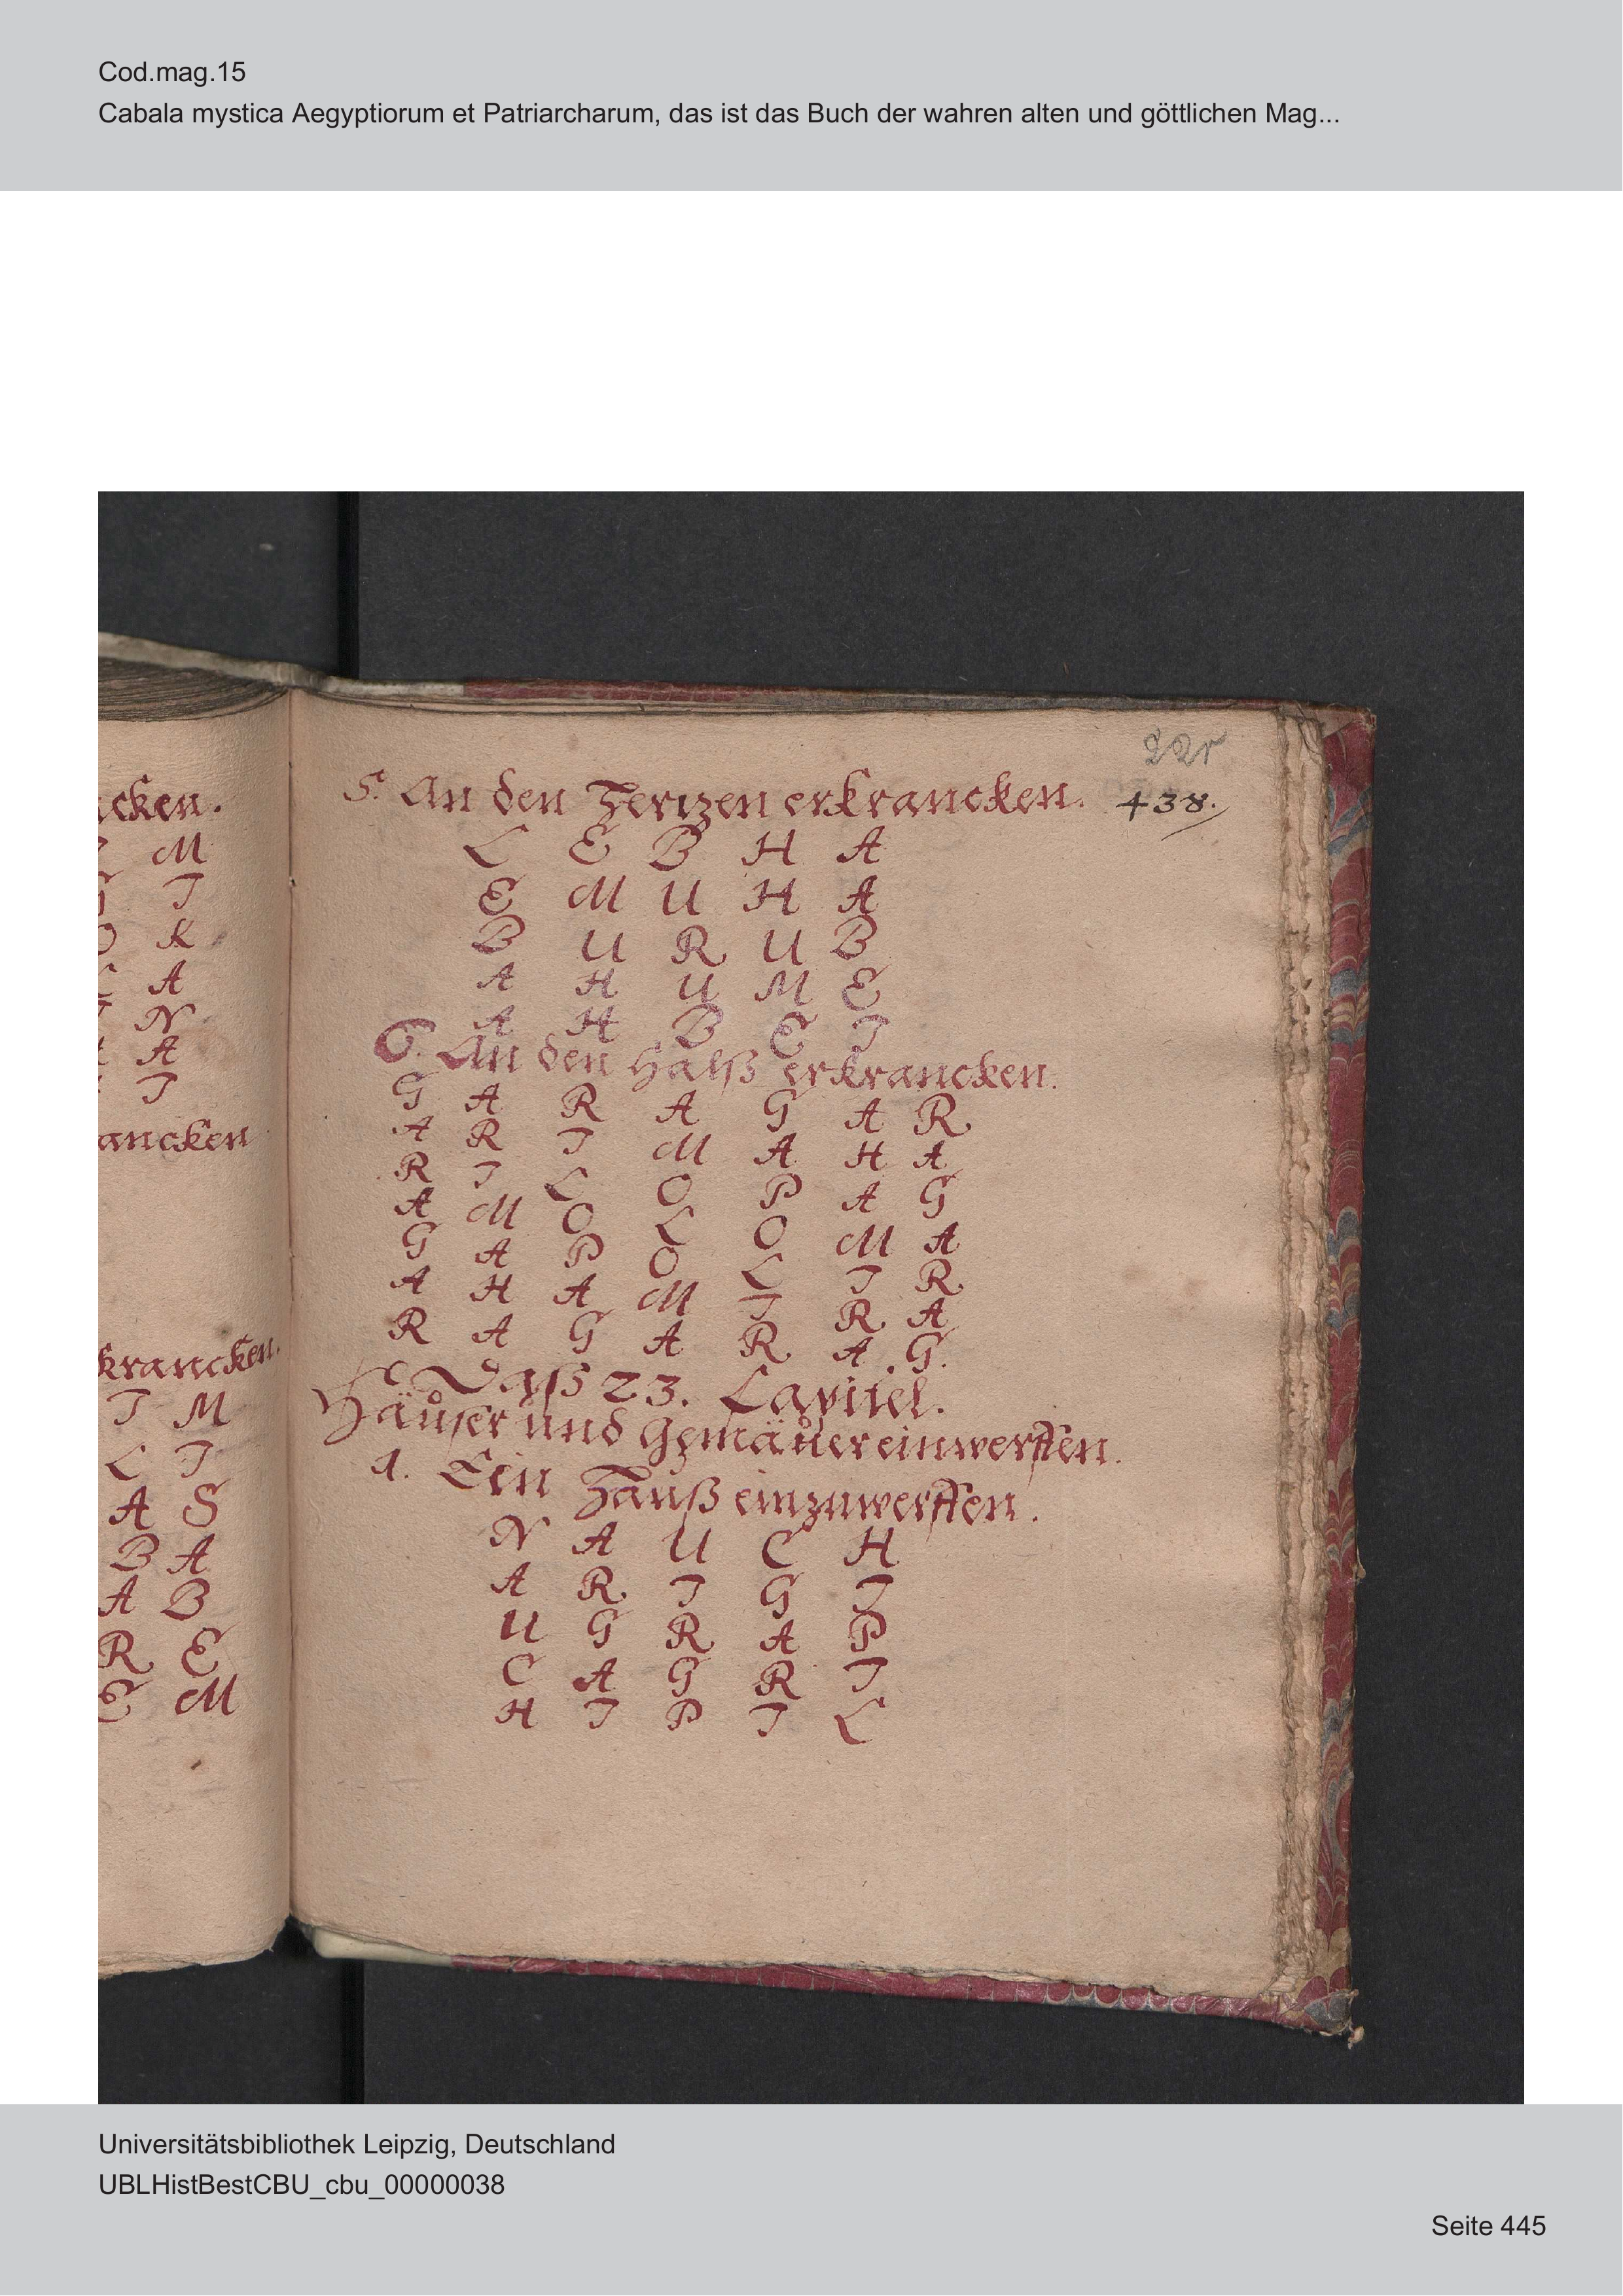 Cod.mag.15
Cabala mystica Aegyptiorum et Patriarcharum, das ist das Buch der wahren alten und göttlichen Mag...
cken.
M
T
K
A
N
A
T
ancken
krancken.
T M
L T
A S
B A
A B
R E
E M
438.
5. An den Hertzen erkrancken.
L E B H A
E M U H A
B U R U B
A H U M E
A H B E T
6. An den Halß erkrancken.
G A R A G A R
A R T M A H A
R T L O P A G
A M O L O M A
G A P O L T R
A H A M T R A
R A G A R A G.
Daß 23. Capitel.
Häuser und Gemäuer einwerffen.
1. Ein Hauß einzuwerffen.
N A U C H
A R T G T
U G R A P
C A G R T
H T P T L
Universitätsbibliothek Leipzig, Deutschland
UBLHistBestCBU_cbu_00000038
Seite 445